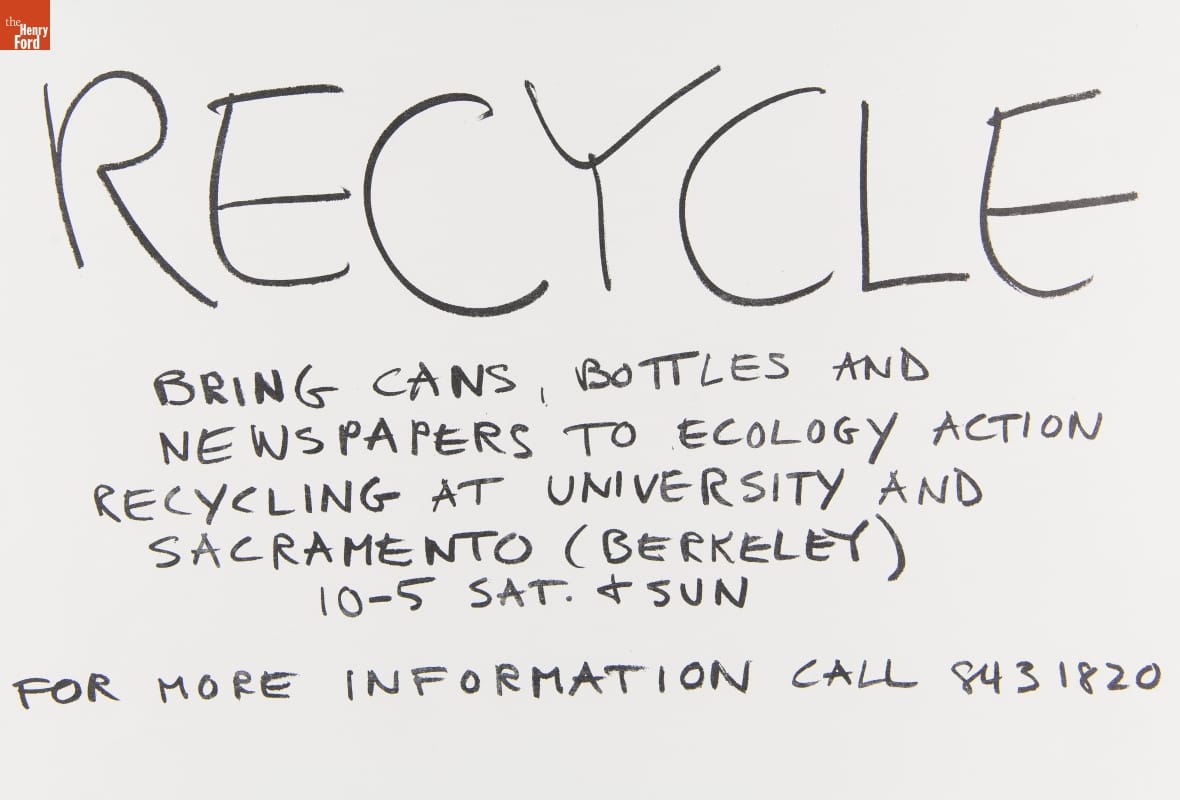 the
Henry
Ford
RECYCLE
BRING CANS, BOTTLES AND
NEWSPAPERS TO ECOLOGY ACTION
RECYCLING AT UNIVERSITY AND
SACRAMENTO (BERKELEY)
10-5 SAT. & SUN
FOR MORE INFORMATION CALL 8431820